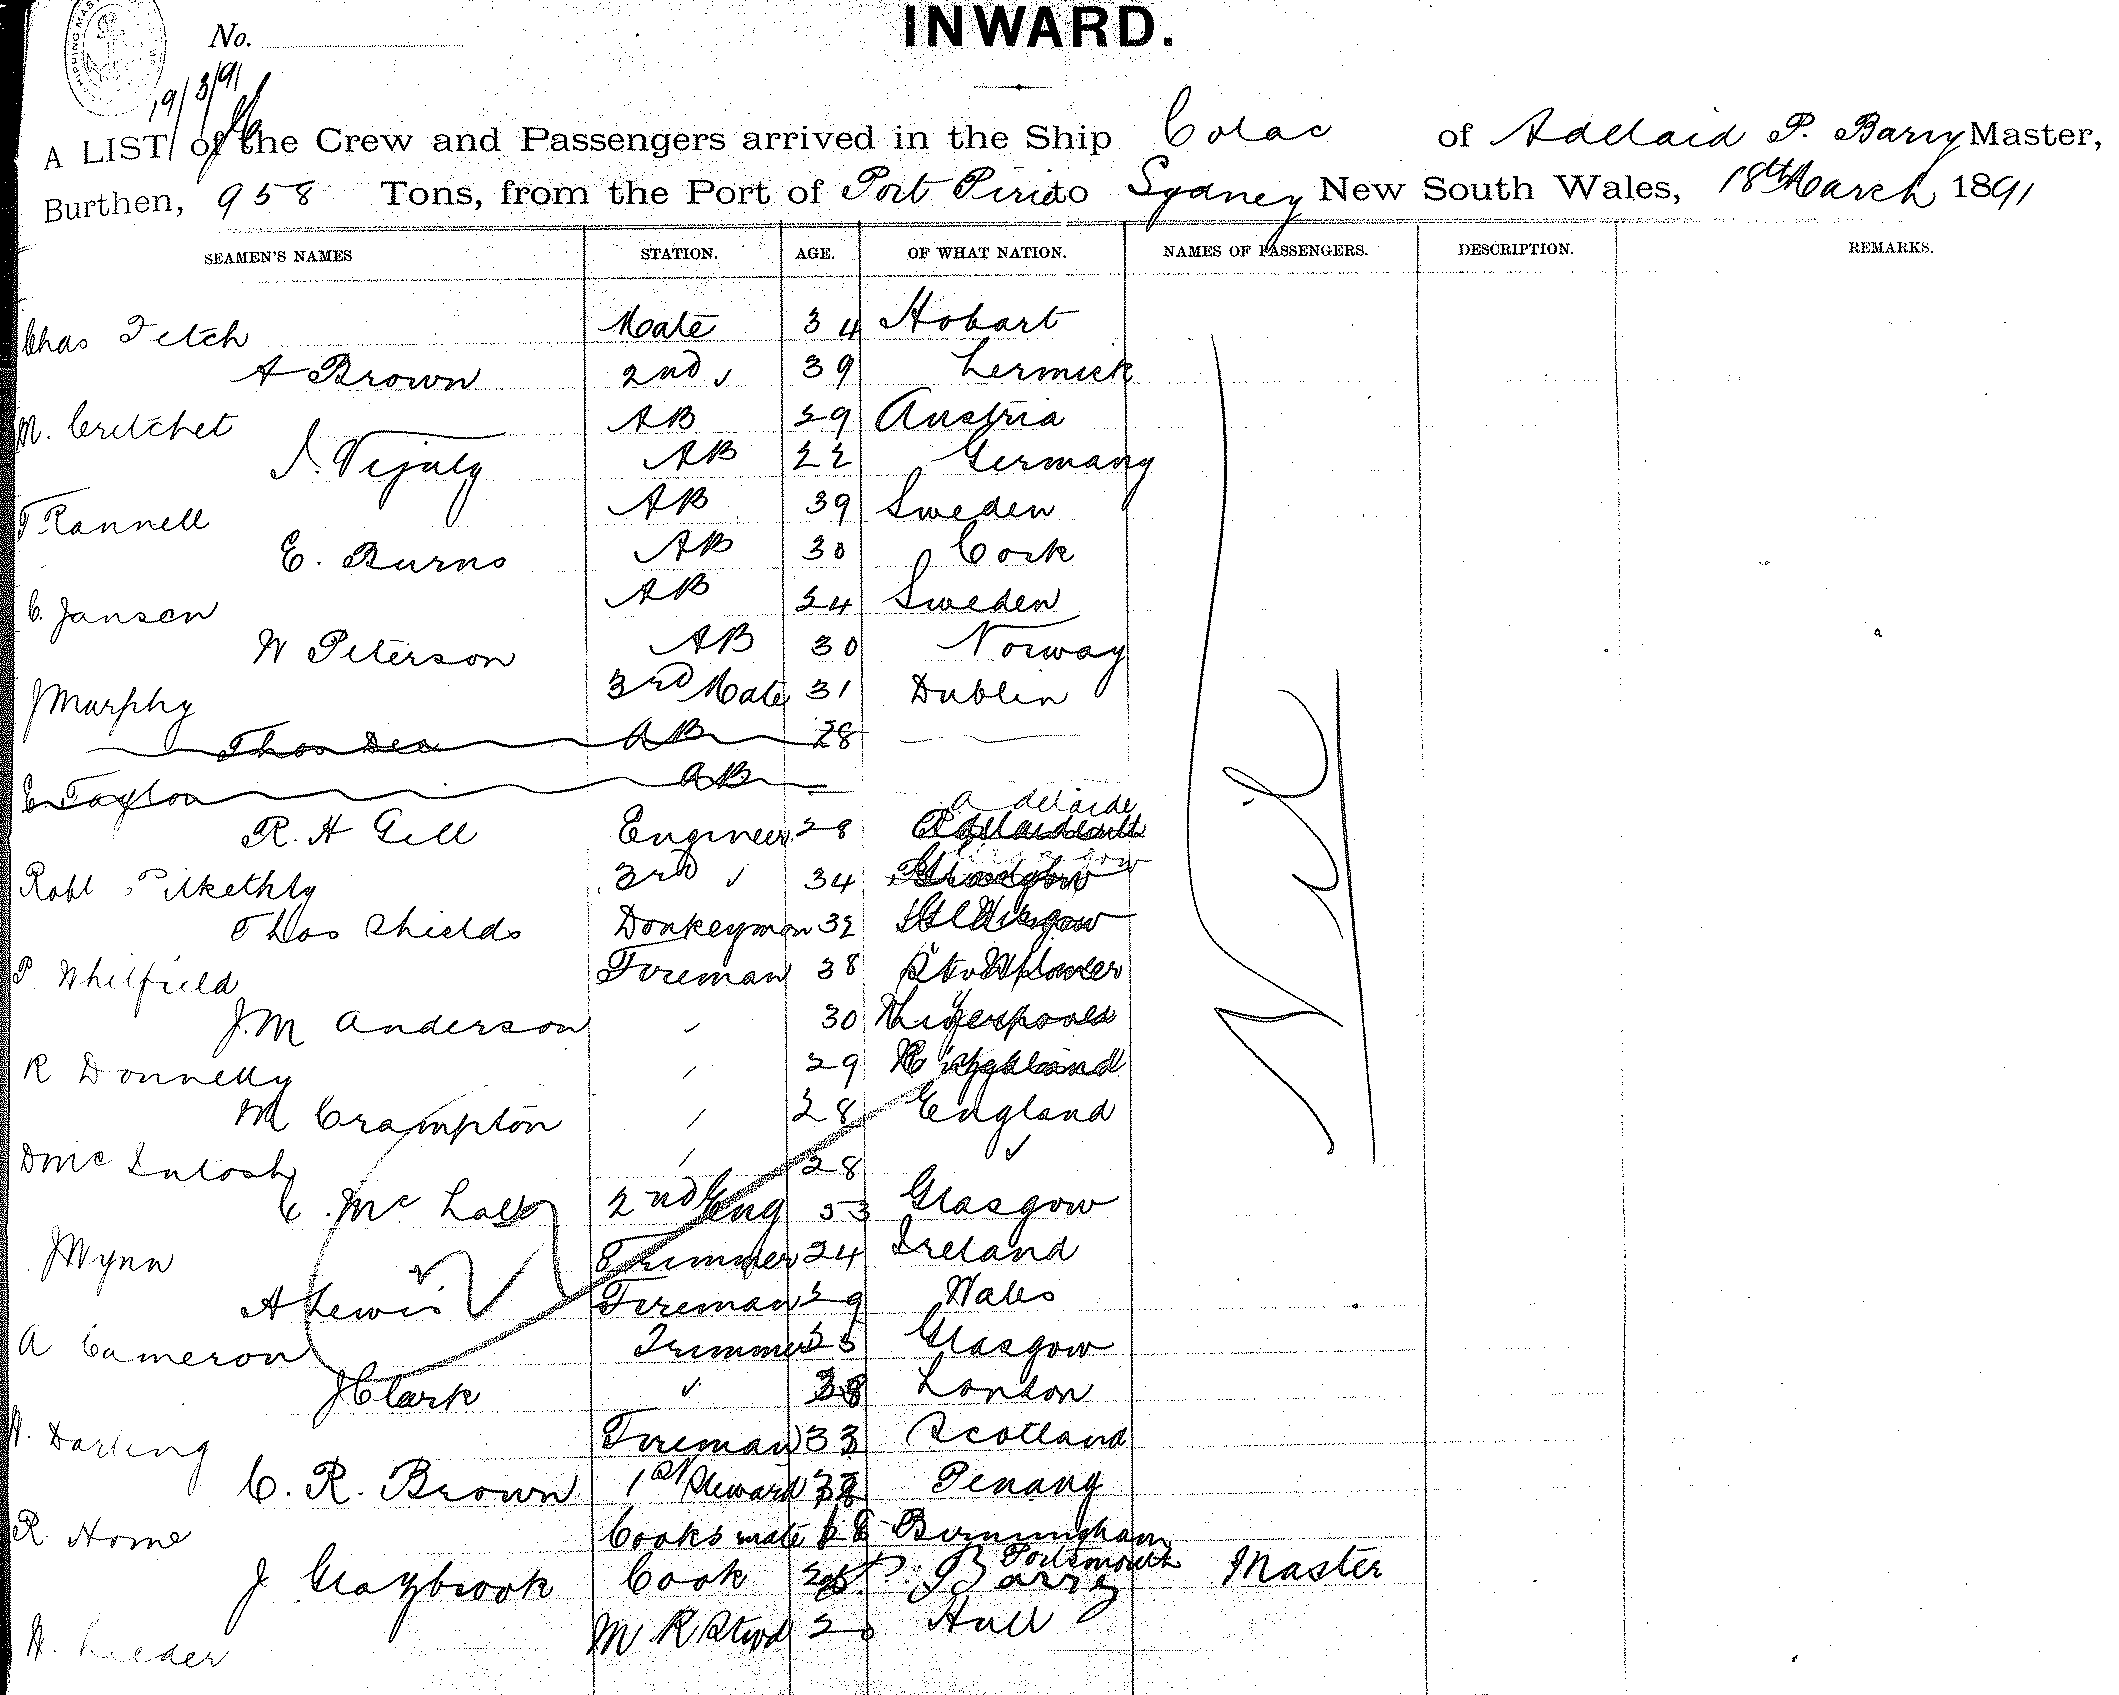 No.
INWARD.
19/3/91
A LIST of the Crew and Passengers arrived in the Ship Colac of Adelaid P. Barry Master,
Burthen, 958 Tons, from the Port of Port Pirie to Sydney New South Wales, 18th March 1891
SEAMEN'S NAMES STATION. AGE. OF WHAT NATION. NAMES OF PASSENGERS. DESCRIPTION. REMARKS.
Chas Fetch Mate 34 Hobart
A Brown 2nd 39 Lerwick
M. Critchet AB 29 Austria
AB 22 Germany
T Rannell AB 39 Sweden
E. Burns AB 30 Cork
C. Jansen AB 24 Sweden
W Peterson AB 30 Norway
J Murphy 3rd Mate 31 Dublin
Thos Dea AB 28
E Taylor AB
R. H Gell Engineer 28 Adelaide
Robt Pilkethly 3rd 34
Thos Shields Donkeyman 32
P Whitfield Fireman 38
J. M Anderson 30
R Donnelly 29
M Crampton 28 England
D Mc Intosh 28
C. Mc 2nd Eng 53 Glasgow
J Wynn Trimmer 24 Ireland
A Lewis Fireman 29 Wales
A Cameron Trimmer 25 Glasgow
J Clark London
Darling Fireman 33 Scotland
C. R. Brown 1st Steward Penang
R Home Cooks mate Birmingham
J Graybrook Cook Portsmouth
P. Barry Master
M R Stwd 20 Hull
Nil